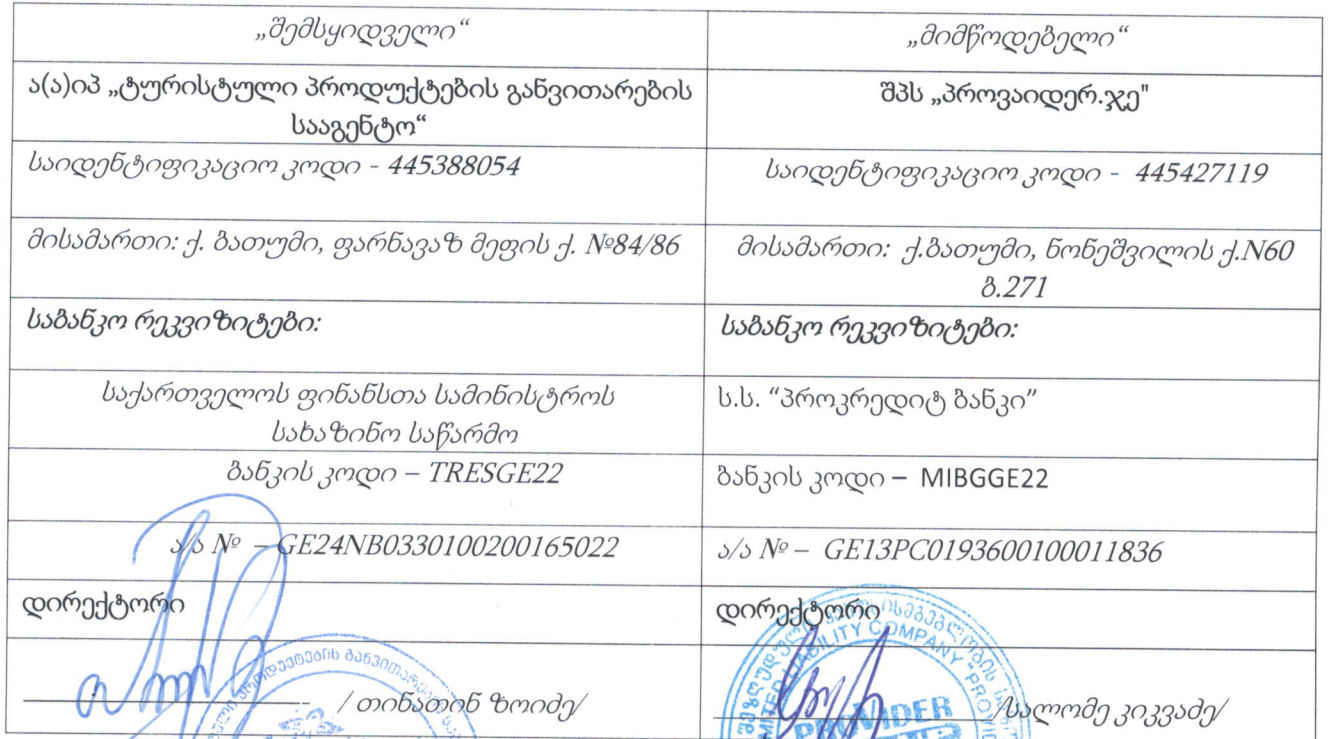 „შემსყიდველი“
„მიმწოდებელი“
ა(ა)იპ „ტურისტული პროდუქტების განვითარების
სააგენტო“
შპს „პროვაიდერ.ჯე"
საიდენტიფიკაციო კოდი - 445388054
საიდენტიფიკაციო კოდი - 445427119
მისამართი: ქ. ბათუმი, ფარნავაზ მეფის ქ. №84/86
მისამართი: ქ.ბათუმი, ნონეშვილის ქ.N60
ბ.271
საბანკო რეკვიზიტები:
საბანკო რეკვიზიტები:
საქართველოს ფინანსთა სამინისტროს
სახაზინო საწარმო
ს.ს. “პროკრედიტ ბანკი”
ბანკის კოდი – TRESGE22
ბანკის კოდი – MIBGGE22
ა/ა № – GE24NB0330100200165022
ა/ა № – GE13PC0193600100011836
დირექტორი
დირექტორი
/ თინათინ ზოიძე/
/სალომე კიკვაძე/
LIABILITY COMPANY
PROVIDER